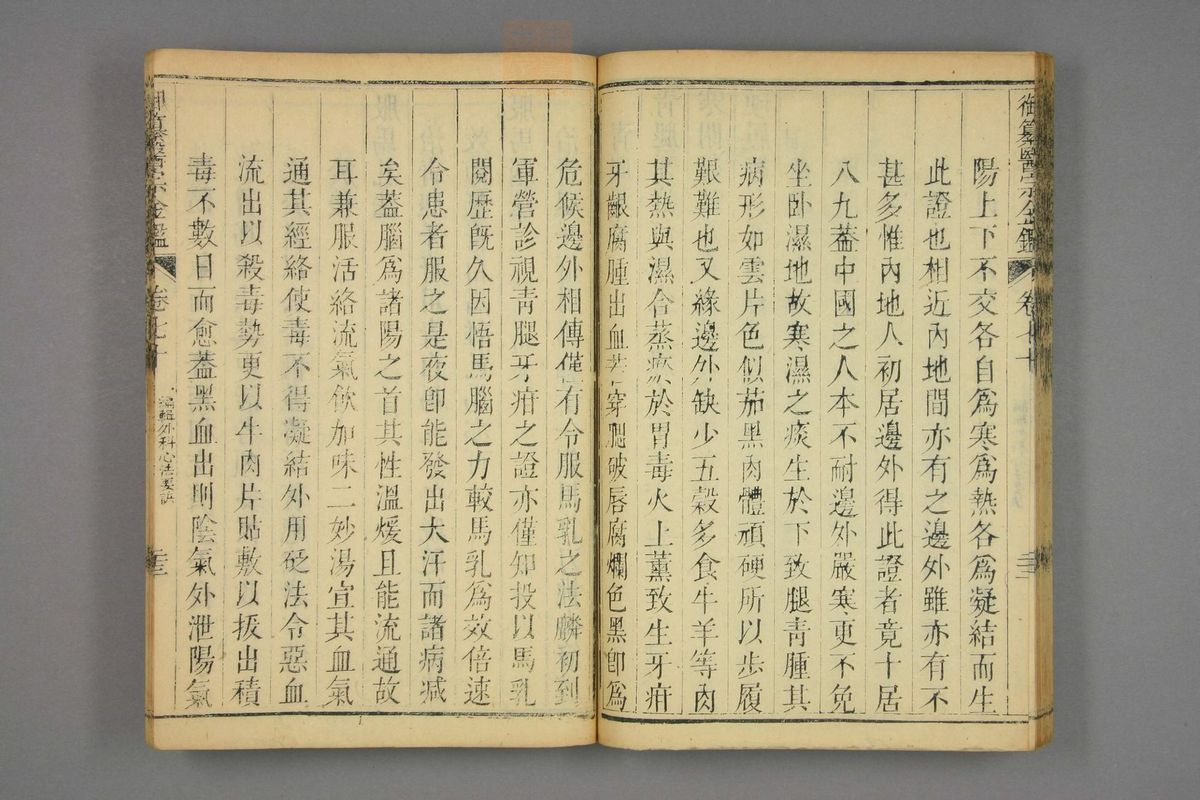 御纂醫宗金鑑 卷七十
陽上下不交各自爲寒爲熱各爲凝結而生
此證也相近內地間亦有之邊外雖亦有不
甚多惟內地人初居邊外得此證者竟十居
八九葢中國之人本不耐邊外嚴寒更不免
坐卧濕地故寒濕之痰生於下致腿青腫其
病形如雲片色似茄黑肉體頑硬所以步履
艱難也又緣邊外缺少五穀多食牛羊等肉
其熱與濕合蒸瘀於胃毒火上薰致生牙疳
牙齦腐腫出血若穿腮破唇腐爛色黑卽爲
危候邊外相傳僅有令服馬乳之法麟初到
軍營診視青腿牙疳之證亦僅知投以馬乳
閱歷旣久因悟馬腦之力較馬乳爲效倍速
令患者服之是夜卽能發出大汗而諸病减
矣葢腦爲諸陽之首其性溫煖且能流通故
耳兼服活絡流氣飲加味二妙湯宣其血氣
通其經絡使毒不得凝結外用砭法令惡血
流出以殺毒勢更以牛肉片貼敷以拔出積
毒不數日而愈葢黑血出則陰氣外泄陽氣
御纂醫宗金鑑 卷七十 編輯外科心法要訣